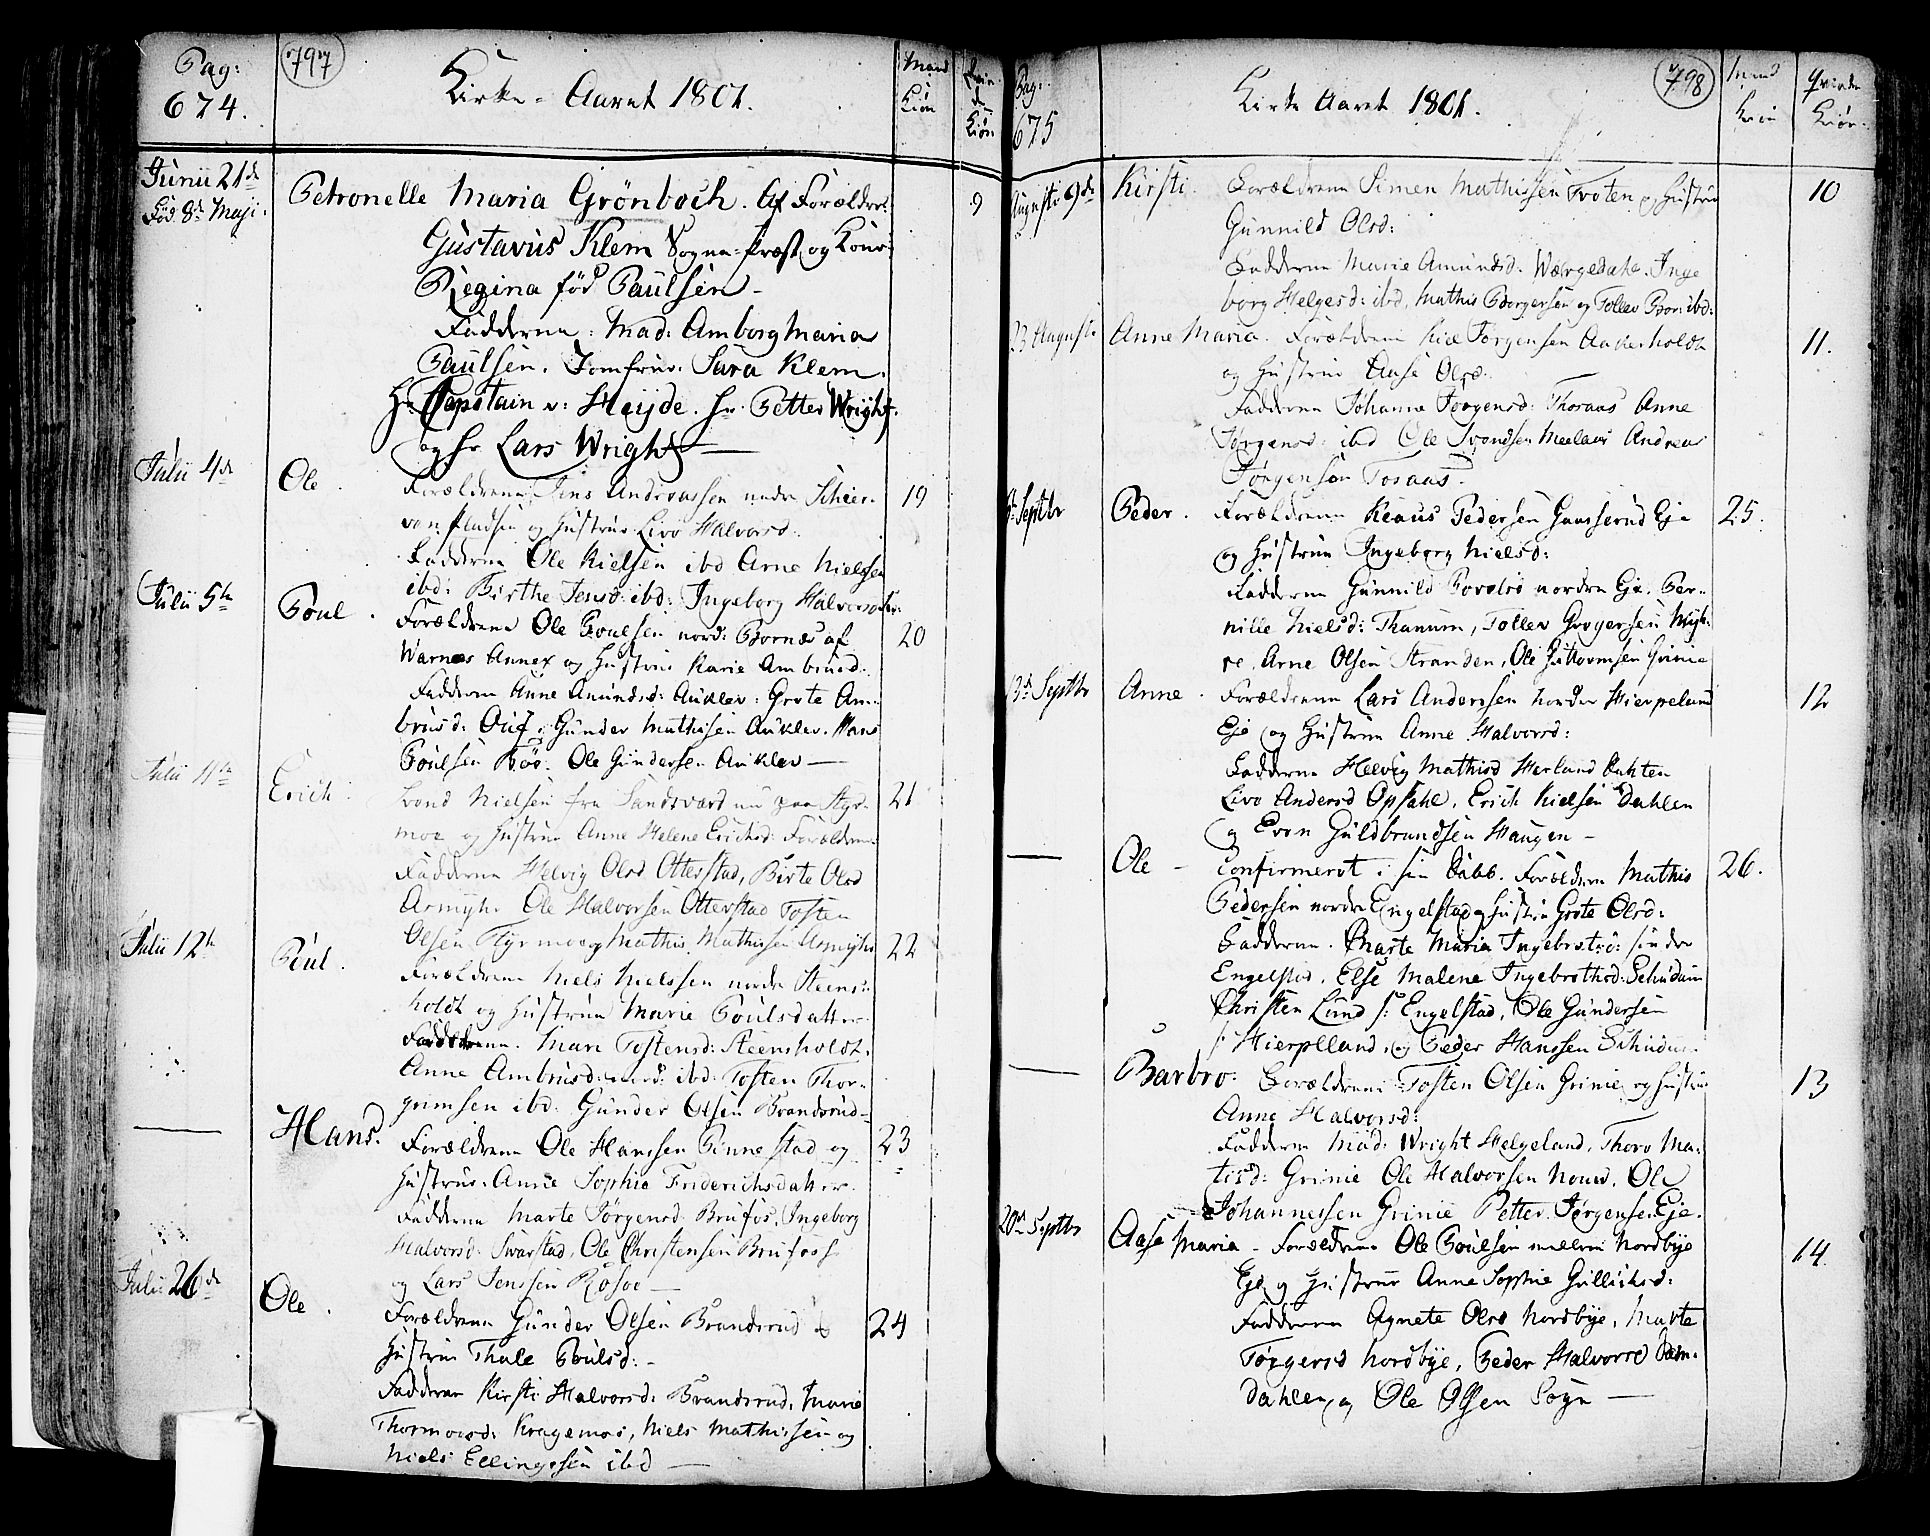 Pag:
674.
797
Kirke-Aaret 1801.
Mand
Kiøn
Qvin
de
Kiøn
Junii 21de
Fød 8de Maji.
Petronelle Maria Grönboch. Af Forældre:
9
Gustavus Klem Sogne-Præst og Kone
Regina fød Paulsen
Fadderne: Mad: Amborg Maria
Paulsen. Jomfrue Sara Klem.
Hr. Capitain v: Heyde. Hr. Petter Wright.
og Hr Lars Wright
Julii 4de
Ole.
Forældrene Jens Andreassen nedre Scheer-
19
ven Pladsen og Hustrue Live Halvorsd.
Fadderne Ole Nielsen ibd Arne Nielsen
ibd: Birthe Jensd: ibd: Ingeborg Halvorsd
Julii 5te
Poul.
Forældrene Ole Poulsen nord: Bornæs af
20
Warnæs Annex og Hustrue Karie Ambrusd.
Fadderne Anne Amundsd: Auklev: Grete Am-
brusd: Gunder Mathisen Auklev. Hans
Poulsen Röe. Ole Gundersen Auklev
Julii 11te
Erich.
Svend Nielsen fra Sandsværd nu paa Styr-
21
moe og Hustrue Anne Helene Erichsd: Forældrene
Fadderne Helvig Olsd Otterstad, Birte Olsd
Asmyhr Ole Halvorsen Otterstad Tosten
Olsen Styrmoe og Mathis Mathissen Asmyhr
Julii 12te
Poul.
22
Forældrene Niels Nielssen nordre Steens-
holdt og Hustrue Marie Poulsdatter
Fadderne. Mari Tostensd: Steensholdt.
Anne Ambrusd: nord: ibd: Tosten Thor-
grimsen ibd. Gunder Olsen Brandsrud
Hans.
Forældrene Ole Hanssen Pinnestad og
23
Hustrue Anne Sophie Friderichsdatter
Fadderne Marte Jørgensd Brufos, Ingeborg
Halvorsd. Swarstad, Ole Christensen Brufoss
og Lars Jenssen Rosoe
Julii 26de
Ole.
Forældrene Gunder Olsen Brandsrud &
24
Hustrue Thale Poulsd:
Fadderne Kirsti Halvorsd: Brandsrud, Marie
Thormoesd: Kragemoe, Niels Mathissen og
Niels Ellingssen ibd
Pag:
675
Kirke Aaret 1801.
798
Mand
Kiøn
Qvinde
Kiøn
Augusti 9de
Kirsti.
Forældrene Simen Mathissen Troten og Hustrue
10
Gunnild Olsd:
Fadderne Marie Amundsd: Wærgedahl. Inge
borg Helgesd: ibd, Mathis Borgersen og Tollev Bor: ibd:
23 Augusti
Anne Maria. Forældrene Niels Jørgensen Aakerholdt
11.
og Hustrue Aase Olsd.
Fadderne Johanne Jørgensd: Thoraas Anne
Jørgensd: ibd Ole Svendsen Meelaas Andreas
Jørgensen Toraas.
Septbr
Peder.
Forældrene Klaus Pedersen Gaasserud Eje
25.
og Hustrue Ingeborg Nielsd:
Fadderne Gunnild nordre Eje. Per-
nille Nielsd: Thanum, Tollev Gregersen Myh-
re, Arne Olsen Stranden, Ole Guttormsen Grinie
13de Septbr
Anne.
Forældrene Lars Anderssen nordre Hierpeland
12
Eje og Hustrue Anne Halvorsd:
Fadderne Helvig Mathisd Herland
Live Andersd Opsahl, Erich Nielsen Dahlen
og Even Guldbrandsen Haugen
Ole
confirmeret i sin Daab. Forældrene Mathis
26.
Pedersen nordre Engelstad og Hustrue Grete Olsd:
Fadderne. Marte Maria Ingebretsd: søndre
Engelstad. Else Malene Ingebrethsd: Schudum
Christen Lund s: Engelstad, Ole Gundersen
s: Hierpeland, og Peder Hanssen Schudum
Barbro.
Forældrene Tosten Olsen Grinie og Hustrue
13
Anne Halvorsd:
Fadderne Mad: Wright Helgeland, Thore Ma-
tisd: Grinie Ole Halvorsen Ole
Johannessen Grinie Petter Jørgensen Eje.
20de Septbr
Aase Maria - Forældrene Ole Poulsen mellem Nordbye
14.
Eje og Hustrue Anne Sophie Gullichsd:
Fadderne Agnete Olsd Nordbye, Marte
Torgersd Nordbye, Peder Halvorsd Dæm-
dahlen og Ole Olsen Sogn